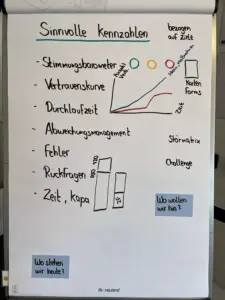 Sinnvolle Kennzahlen
bezogen
auf Zielt
- Stimmungsbarometer
- Vertrauenskurve
Zeit
Karten
Forms
- Durchlaufzeit
- Abweichungsmanagement
Störmatrix
- Fehler
Challenge
- Rückfragen
- Zeit, Kapa
Wo wollen
wir hin?
Wo stehen
wir heute?
neuland